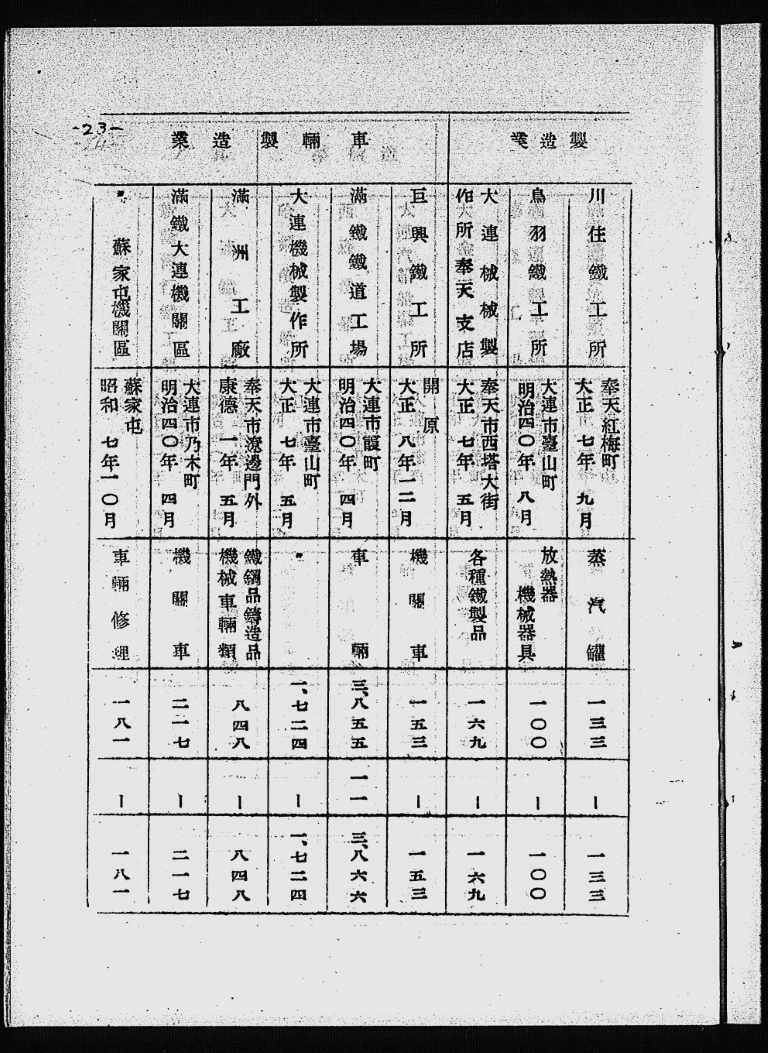 -23-
製造業
川住鐵工所
奉天紅梅町
大正七年九月
蒸汽罐
一三三
ー
一三三
鳥羽鐵工所
大連市臺山町
明治四〇年八月
放熱器
機械器具
一〇〇
ー
一〇〇
大連械械製
作所奉天支店
奉天市西塔大街
大正七年五月
各種鐵製品
一六九
ー
一六九
車輛製造業
巨興鐵工所
開原
大正八年一二月
機關車
一五三
ー
一五三
滿鐵鐵道工場
大連市霞町
明治四〇年四月
車輛
三、八五五
一一
三、八六六
大連機械製作所
大連市臺山町
大正七年五月
〃
一、七二四
ー
一、七二四
滿洲工廠
奉天市瀋邊門外
康德一年五月
鐵鋼品鑄造品
機械車輛類
八四八
ー
八四八
滿鐵大連機關區
大連市乃木町
明治四〇年四月
機關車
二一七
ー
二一七
〃蘇家屯機關區
蘇家屯
昭和七年一〇月
車輛修理
一八一
ー
一八一